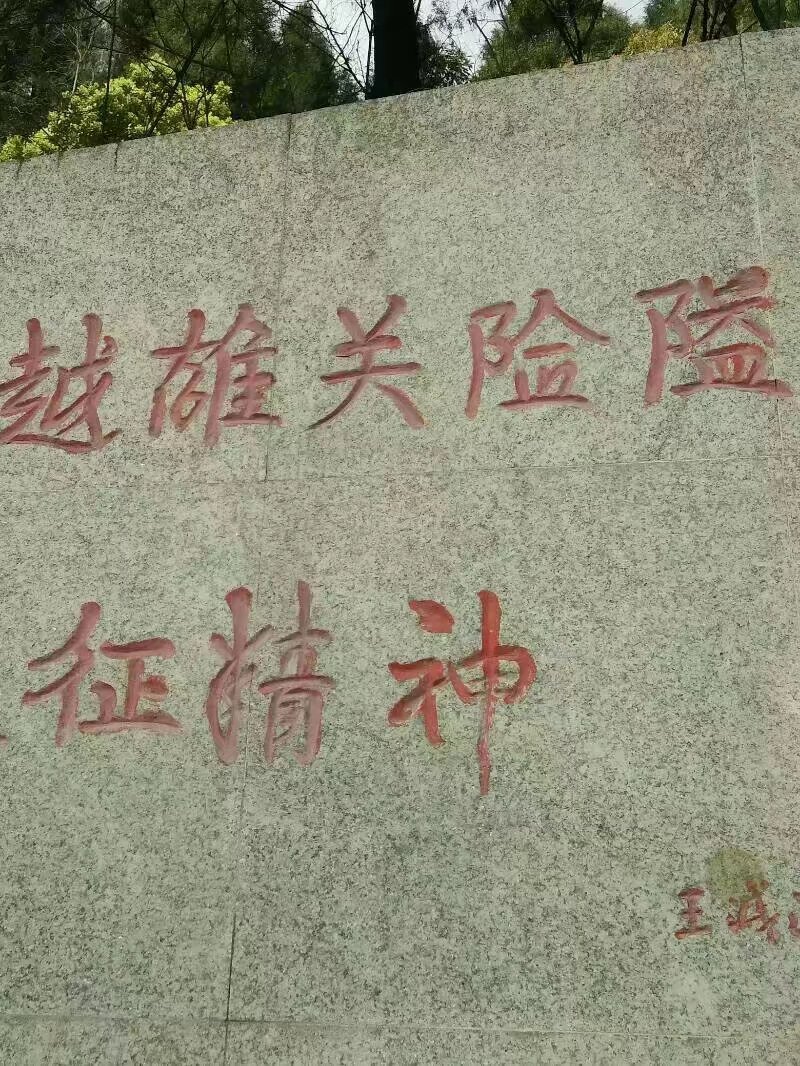 越雄关险隘
征精神
王成